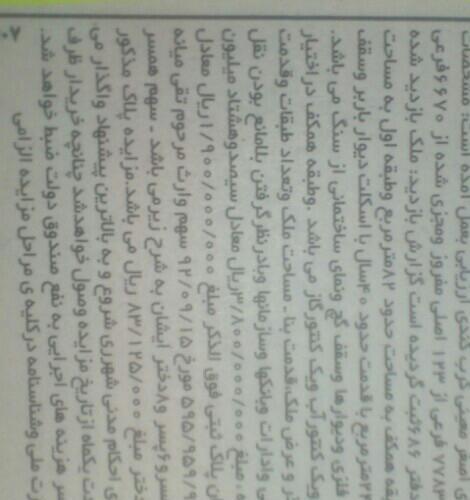 معینی عرب کندی ارزیابی بعمل آمده است: ششصت
۷۷۸۳ فرعی از ۱۲۳ اصلی مفروز ومجزی شده از ۶۶۷۰فرعی
دفتر ۸۶ ثبت گردیده است گزارش بازدید: ملک بازدید شده
همکف به مساحت حدود ۸۲مترمربع وطبقه اول به مساحت
مترمربع با قدمت حدود ۴۰سال با اسکلت دیوار باربر وسقف
فلزی ودیوارها وسقف گچ ونمای ساختمانی از سنگ می باشد.
یک کنتور آب ویک کنتور گاز می باشد .وطبقه همکف در اختیار
و عرض ملک،قدمت بنا . مساحت ملک وتعداد طبقات وقدمت
وادارات وبانکها وسازمانها وبادرنظر گرفتن بلامانع بودن نقل
مبلغ ۳/۸۰۰/۰۰۰/۰۰۰ریال معادل سیصدوهشتاد میلیون
پلاک ثبتی فوق الذکر مبلغ ۱/۹۰۰/۰۰۰/۰۰۰ریال معادل
۵۹۵/۹۵۹/۹ مورخ ۹۲/۰۹/۱۵ سهم وارث مرحوم تقی میانه
پسرو۸دختر ایشان به شرح زیرمی باشد . سهم همسر
دختر مبلغ ۸۳/۱۲۵/۰۰۰ ریال می باشد.مزایده پلاک مذکور
احکام مدنی شهرری شروع و به بالاترین پیشنهاد واگذار می
یکماه ازتاریخ مزایده وصول خواهدشد چنانچه خریدار ظرف
کسر هزینه های اجرایی به نفع صندوق دولت ضبط خواهد شد.
ملی وشناسنامه درکلیه ی مراحل مزایده الزامی